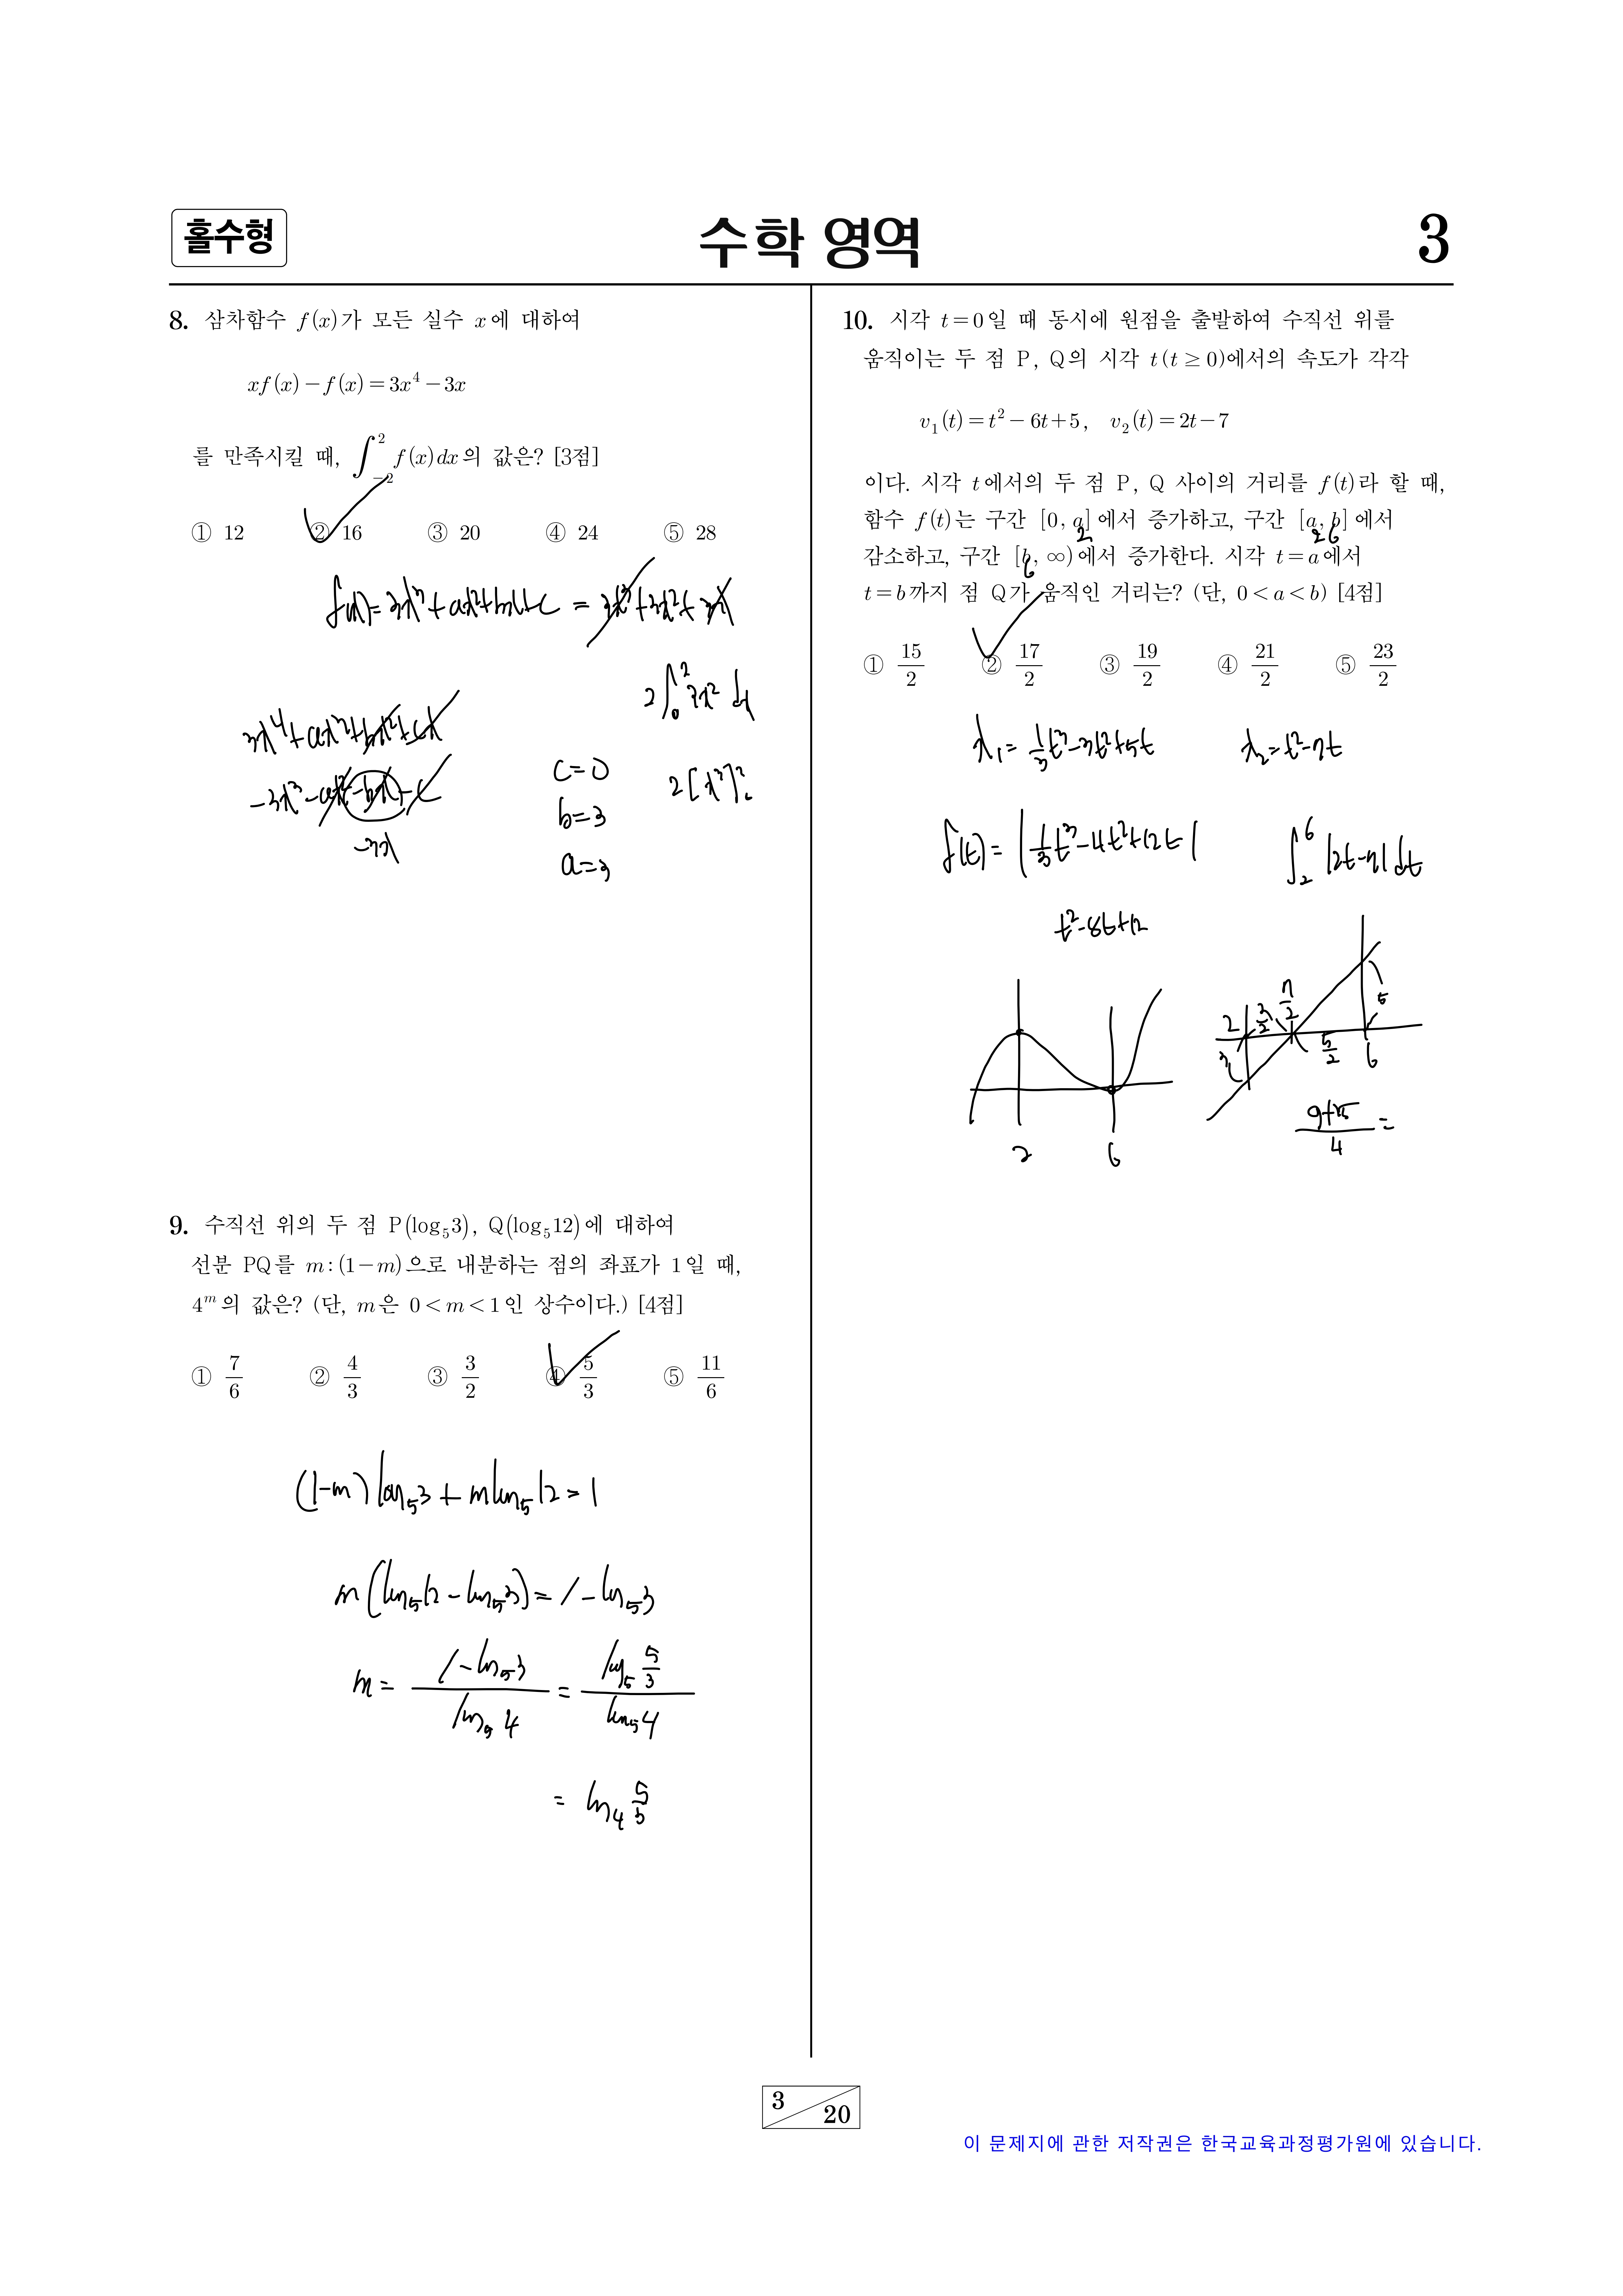 홀수형
수학 영역
3
8. 삼차함수 f(x)가 모든 실수 x에 대하여
xf(x)-f(x)=3x⁴-3x
를 만족시킬 때, ∫₋₂² f(x)dx의 값은? [3점]
① 12 ② 16 ③ 20 ④ 24 ⑤ 28
f(x)=3x³+ax²+bx+c = 3x³+3x²+3x
2∫₀² 3x² dx
3x⁴+ax³+bx²+cx
-3x³-ax²-bx-c
-3x
c=0
b=3
a=3
2[x³]²₀
9. 수직선 위의 두 점 P(log₅3), Q(log₅12)에 대하여
선분 PQ를 m:(1-m)으로 내분하는 점의 좌표가 1일 때,
4ᵐ의 값은? (단, m은 0<m<1인 상수이다.) [4점]
① 7/6 ② 4/3 ③ 3/2 ④ 5/3 ⑤ 11/6
(1-m)log₅3+mlog₅12=1
m(log₅12-log₅3)=1-log₅3
m= (1-log₅3)/(log₅4) = (log₅ 5/3)/(log₅4)
= log₄ 5/3
10. 시각 t=0일 때 동시에 원점을 출발하여 수직선 위를
움직이는 두 점 P, Q의 시각 t(t≥0)에서의 속도가 각각
v₁(t)=t²-6t+5, v₂(t)=2t-7
이다. 시각 t에서의 두 점 P, Q 사이의 거리를 f(t)라 할 때,
함수 f(t)는 구간 [0, a]에서 증가하고, 구간 [a, b]에서
2 2 6
감소하고, 구간 [b, ∞)에서 증가한다. 시각 t=a에서
6
t=b까지 점 Q가 움직인 거리는? (단, 0<a<b) [4점]
① 15/2 ② 17/2 ③ 19/2 ④ 21/2 ⑤ 23/2
x₁=1/3t³-3t²+5t x₂=t²-7t
f(t)=|1/3t³-4t²+12t| ∫₂⁶ |2t-7|dt
t²-8t+12
2 6
2 3/2 7/2 5
3 5/2 6
(9+25)/4 =
3
20
이 문제지에 관한 저작권은 한국교육과정평가원에 있습니다.